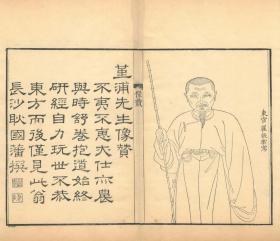 東官羅
像贊
堇浦先生像贊
不夷不惠亦仕亦農
與時舒卷抱道始終
研經自力玩世不恭
東方而後僅見此翁
長沙耿國藩撰